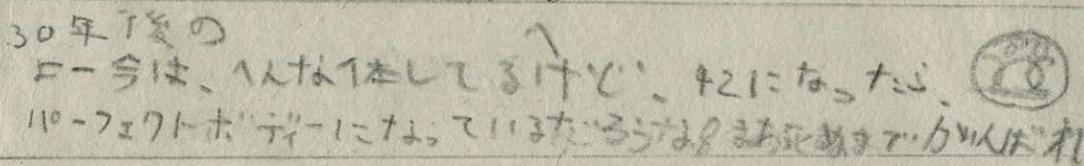 30年後の
F一今は、へんな体してるけど、42になったら、
パーフェクトボディーになっているだろうな。まあ死ぬまでがんばれ